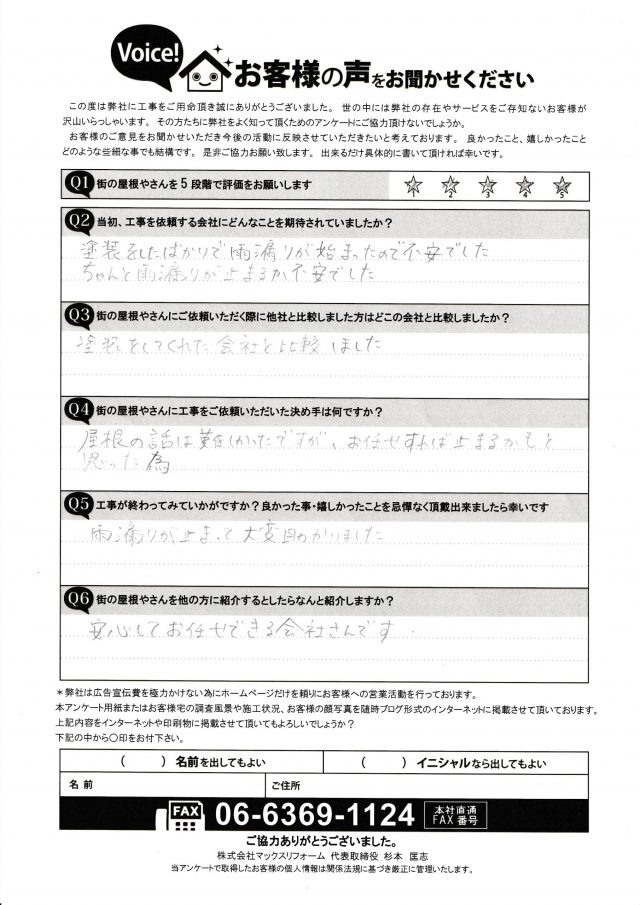 Voice!
お客様の声をお聞かせください
この度は弊社に工事をご用命頂き誠にありがとうございました。 世の中には弊社の存在やサービスをご存知ないお客様が
沢山いらっしゃいます。 その方たちに弊社をよく知って頂くためのアンケートにご協力頂けないでしょうか。
お客様のご意見をお聞かせいただき今後の活動に反映させていただきたいと考えております。 良かったこと、嬉しかったこと
どのような些細な事でも結構です。 是非ご協力お願い致します。 出来るだけ具体的に書いて頂ければ幸いです。
Q1 街の屋根やさんを5段階で評価をお願いします
1 2 3 4 5
Q2 当初、工事を依頼する会社にどんなことを期待されていましたか？
塗装をしたばかりで雨漏りが始まったので不安でした
ちゃんと雨漏りが止まるか不安でした
Q3 街の屋根やさんにご依頼いただく際に他社と比較しました方はどこの会社と比較しましたか？
塗装をしてくれた会社と比較しました
Q4 街の屋根やさんに工事をご依頼いただいた決め手は何ですか？
屋根の話は難しかったですが、お任せすれば止まるかもと
思った為
Q5 工事が終わってみていかがですか？良かった事・嬉しかったことを忌憚なく頂戴出来ましたら幸いです
雨漏りが止まって大変助かりました
Q6 街の屋根やさんを他の方に紹介するとしたらなんと紹介しますか？
安心してお任せできる会社さんです
＊弊社は広告宣伝費を極力かけない為にホームページだけを頼りにお客様への営業活動を行っております。
本アンケート用紙またはお客様宅の調査風景や施工状況、お客様の顔写真を随時ブログ形式のインターネットに掲載させて頂いております。
上記内容をインターネットや印刷物に掲載させて頂いてもよろしいでしょうか？
下記の中から○印をお付下さい。
（　　）名前を出してもよい （　　）イニシャルなら出してもよい
名 前 ご住所
FAX 06-6369-1124 本社直通 FAX番号
ご協力ありがとうございました。
株式会社マックスリフォーム 代表取締役 杉本 匡志
当アンケートで取得したお客様の個人情報は関係法規に基づき厳正に管理いたします。